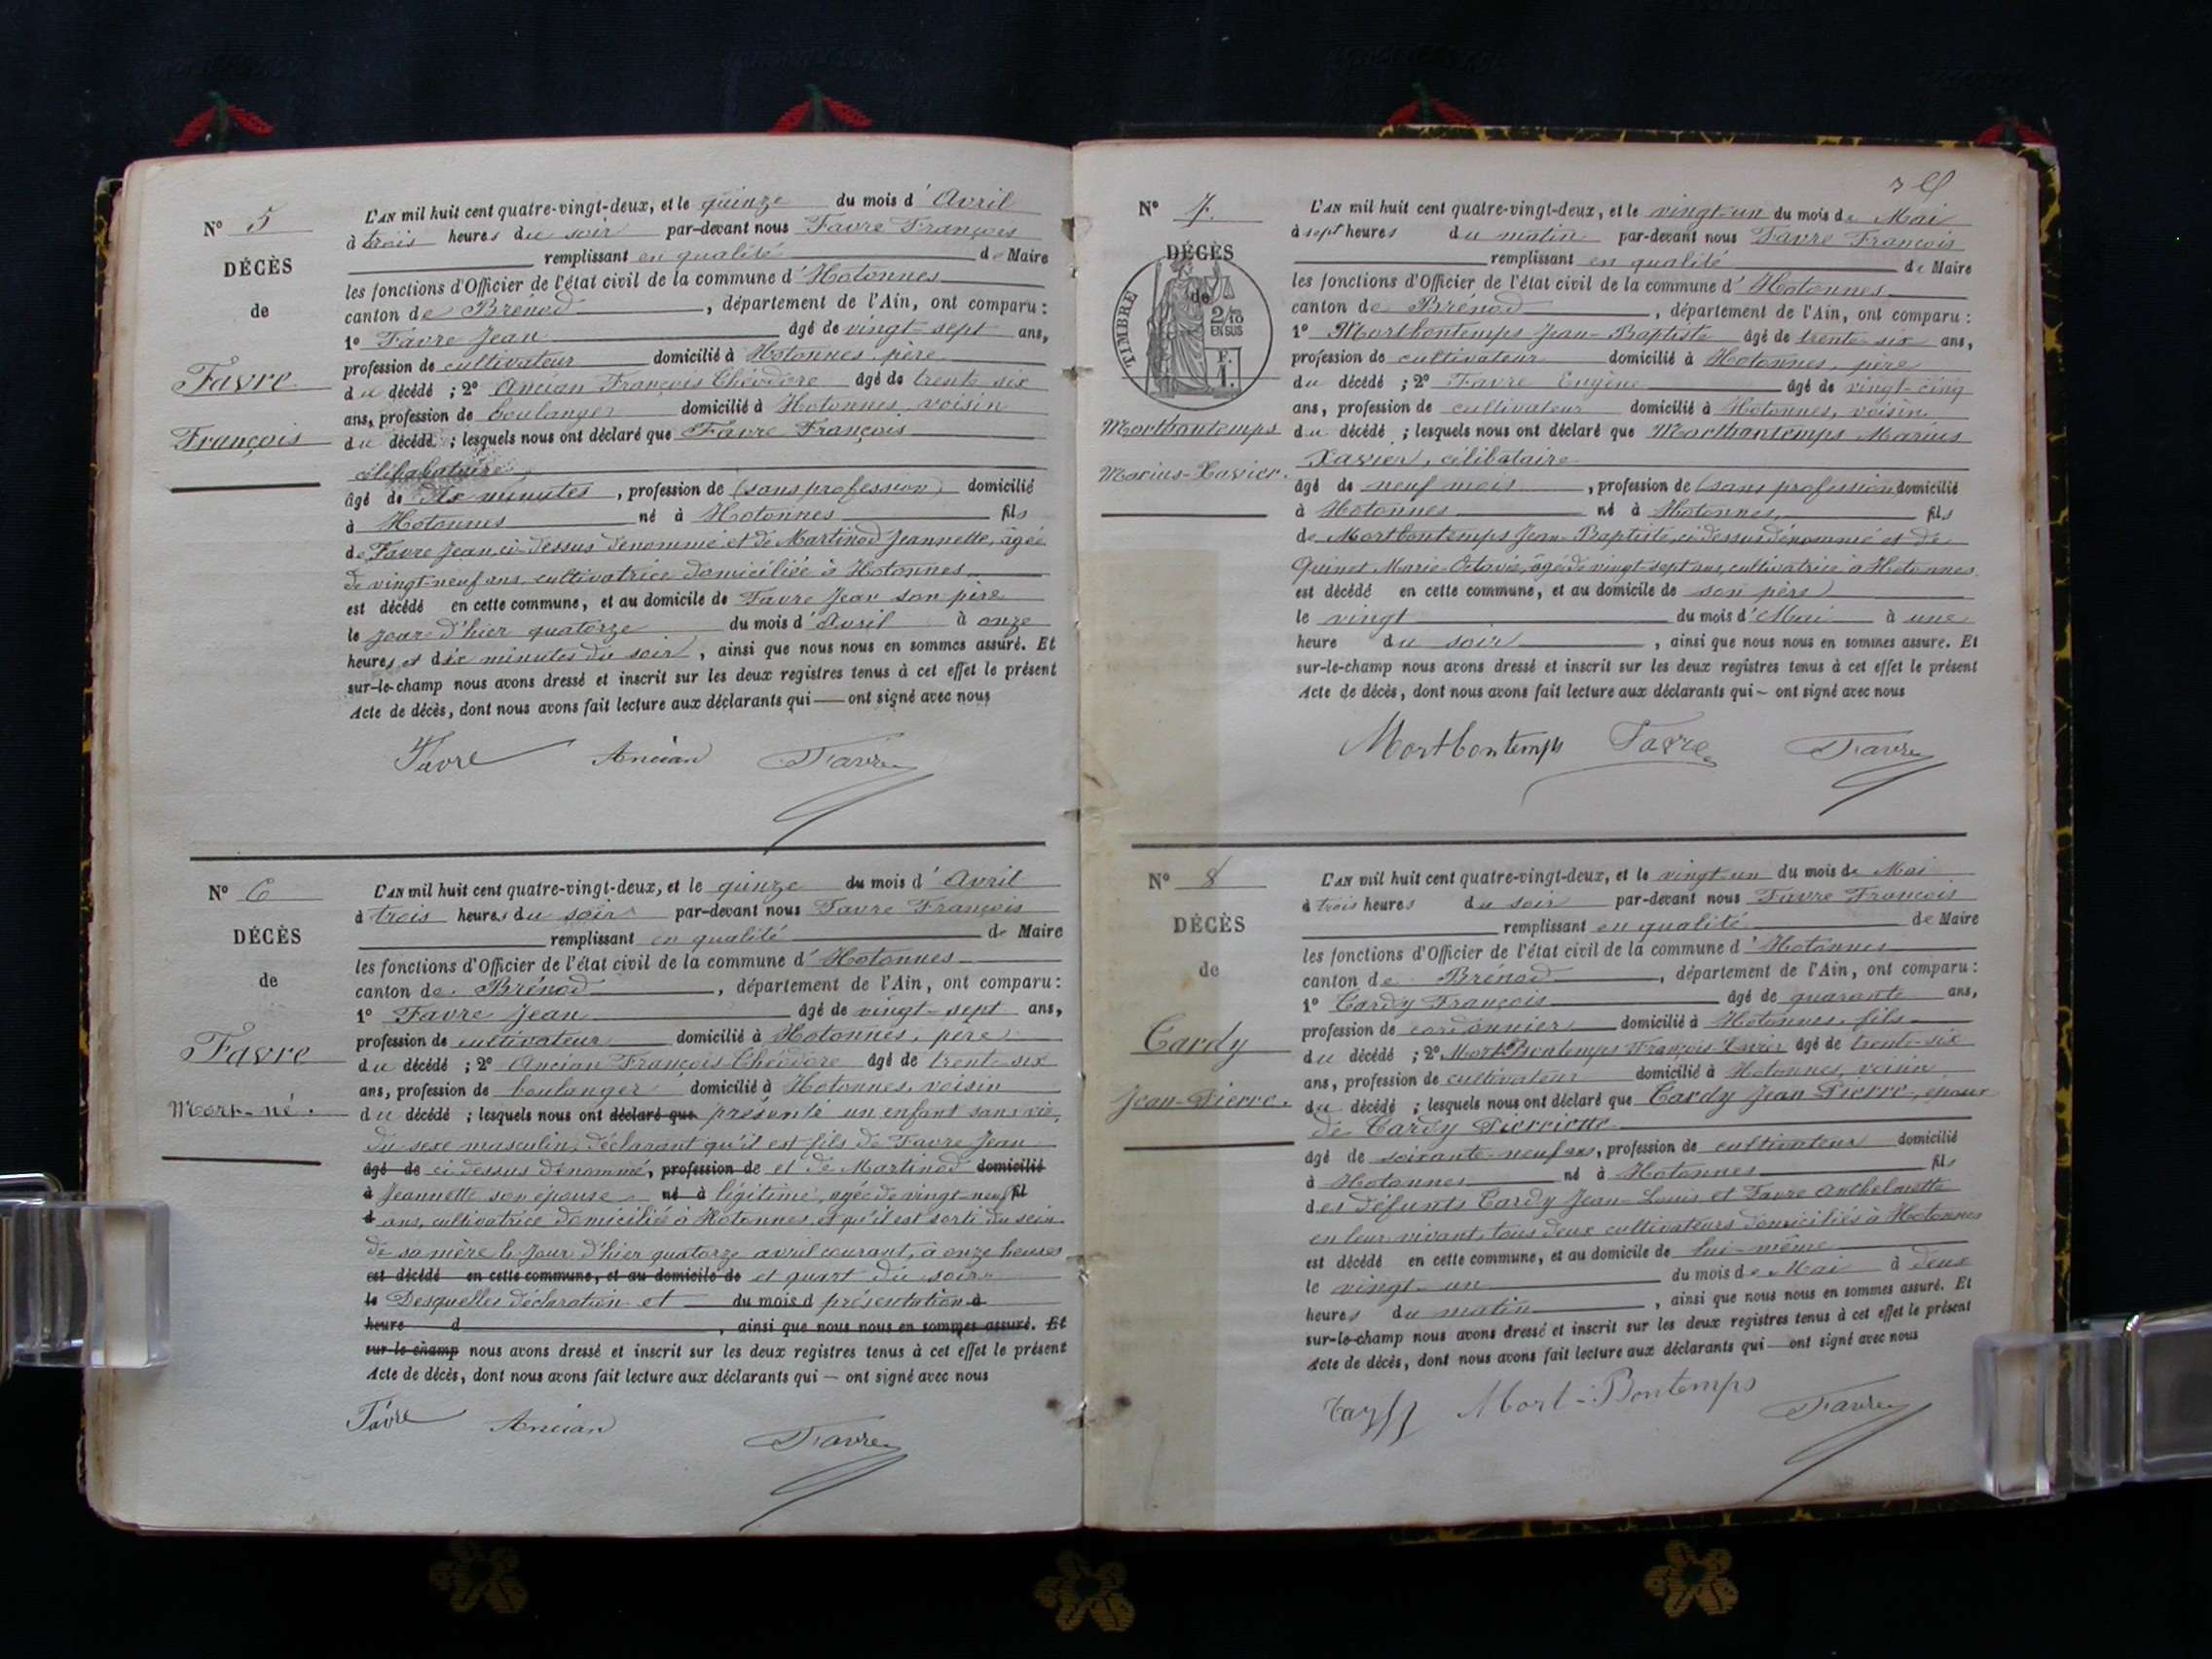 N° 5
DÉCÈS
de
Favre
François
L'AN mil huit cent quatre-vingt-deux, et le quinze du mois d'Avril
à trois heures du soir par-devant nous Favre François
remplissant en qualité de Maire
les fonctions d'Officier de l'état civil de la commune d'Hotonnes
canton de Brénod, département de l'Ain, ont comparu :
1° Favre Jean âgé de vingt-sept ans,
profession de cultivateur domicilié à Hotonnes, père
du décédé ; 2° Ancian François Théodore âgé de trente-six
ans, profession de boulanger domicilié à Hotonnes, voisin
du décédé ; lesquels nous ont déclaré que Favre François
célibataire
âgé de dix minutes, profession de (sans profession) domicilié
à Hotonnes né à Hotonnes fils
de Favre Jean, ci-dessus dénommé et de Martinod Jeannette, âgée
de vingt-neuf ans, cultivatrice domiciliée à Hotonnes
est décédé en cette commune, et au domicile de Favre Jean son père
le jour d'hier quatorze du mois d'Avril à onze
heures et dix minutes du soir, ainsi que nous nous en sommes assuré. Et
sur-le-champ nous avons dressé et inscrit sur les deux registres tenus à cet effet le présent
Acte de décès, dont nous avons fait lecture aux déclarants qui — ont signé avec nous
Favre Ancian Favre
N° 6
DÉCÈS
de
Favre
Mort-né.
L'AN mil huit cent quatre-vingt-deux, et le quinze du mois d'Avril
à trois heures du soir par-devant nous Favre François
remplissant en qualité de Maire
les fonctions d'Officier de l'état civil de la commune d'Hotonnes
canton de Brénod, département de l'Ain, ont comparu :
1° Favre Jean âgé de vingt-sept ans,
profession de cultivateur domicilié à Hotonnes, père
du décédé ; 2° Ancian François Théodore âgé de trente-six
ans, profession de boulanger domicilié à Hotonnes, voisin
du décédé ; lesquels nous ont déclaré que présenté un enfant sans vie,
du sexe masculin, déclarant qu'il est fils de Favre Jean
âgé de ci-dessus dénommé, profession de et de Martinod domicilié
à Jeannette son épouse né à légitime, agée de vingt-neuf fil
d ans, cultivatrice domiciliée à Hotonnes, et qu'il est sorti du sein
de sa mère le jour d'hier quatorze avril courant, à onze heures
est décédé en cette commune, et au domicile de et quart du soir
le Desquelles déclaration et du mois d présentation à
heure d , ainsi que nous nous en sommes assuré. Et
sur-le-champ nous avons dressé et inscrit sur les deux registres tenus à cet effet le présent
Acte de décès, dont nous avons fait lecture aux déclarants qui — ont signé avec nous
Favre Ancian Favre
N° 7
DÉCÈS
de
TIMBRE
2/10
EN SUS
F.
1.
Mortbontemps
Marius-Xavier.
L'AN mil huit cent quatre-vingt-deux, et le vingt-un du mois de Mai
à sept heures du matin par-devant nous Favre François
remplissant en qualité de Maire
les fonctions d'Officier de l'état civil de la commune d'Hotonnes
canton de Brénod, département de l'Ain, ont comparu :
1° Mortbontemps Jean-Baptiste âgé de trente-six ans,
profession de cultivateur domicilié à Hotonnes, père
du décédé ; 2° Favre Eugène âgé de vingt-cinq
ans, profession de cultivateur domicilié à Hotonnes, voisin
du décédé ; lesquels nous ont déclaré que Mortbontemps Marius
Xavier, célibataire
âgé de neuf mois, profession de (sans profession) domicilié
à Hotonnes né à Hotonnes, fils
de Mortbontemps Jean-Baptiste, ci-dessus dénommé et de
Quinet Marie Octavie, âgée de vingt-sept ans, cultivatrice à Hotonnes
est décédé en cette commune, et au domicile de son père
le vingt du mois d Mai à une
heure du soir, ainsi que nous nous en sommes assuré. Et
sur-le-champ nous avons dressé et inscrit sur les deux registres tenus à cet effet le présent
Acte de décès, dont nous avons fait lecture aux déclarants qui — ont signé avec nous
Mortbontemps Favre Favre
N° 8
DÉCÈS
de
Cardy
Jean-Pierre.
L'AN mil huit cent quatre-vingt-deux, et le vingt-un du mois de Mai
à trois heures du soir par-devant nous Favre François
remplissant en qualité de Maire
les fonctions d'Officier de l'état civil de la commune d'Hotonnes
canton de Brénod, département de l'Ain, ont comparu :
1° Cardy François âgé de quarante ans,
profession de cordonnier domicilié à Hotonnes, fils
du décédé ; 2° Mort-Bontemps François-Xavier âgé de trente-six
ans, profession de cultivateur domicilié à Hotonnes, voisin
du décédé ; lesquels nous ont déclaré que Cardy Jean Pierre, époux
de Cardy Pierrette
âgé de soixante-neuf ans, profession de cultivateur domicilié
à Hotonnes né à Hotonnes fils
des défunts Cardy Jean-Louis et Favre Anthelmette
en leur vivant, tous deux cultivateurs domiciliés à Hotonnes
est décédé en cette commune, et au domicile de lui-même
le vingt-un du mois de Mai à deux
heures du matin, ainsi que nous nous en sommes assuré. Et
sur-le-champ nous avons dressé et inscrit sur les deux registres tenus à cet effet le présent
Acte de décès, dont nous avons fait lecture aux déclarants qui — ont signé avec nous
Mort-Bontemps Favre